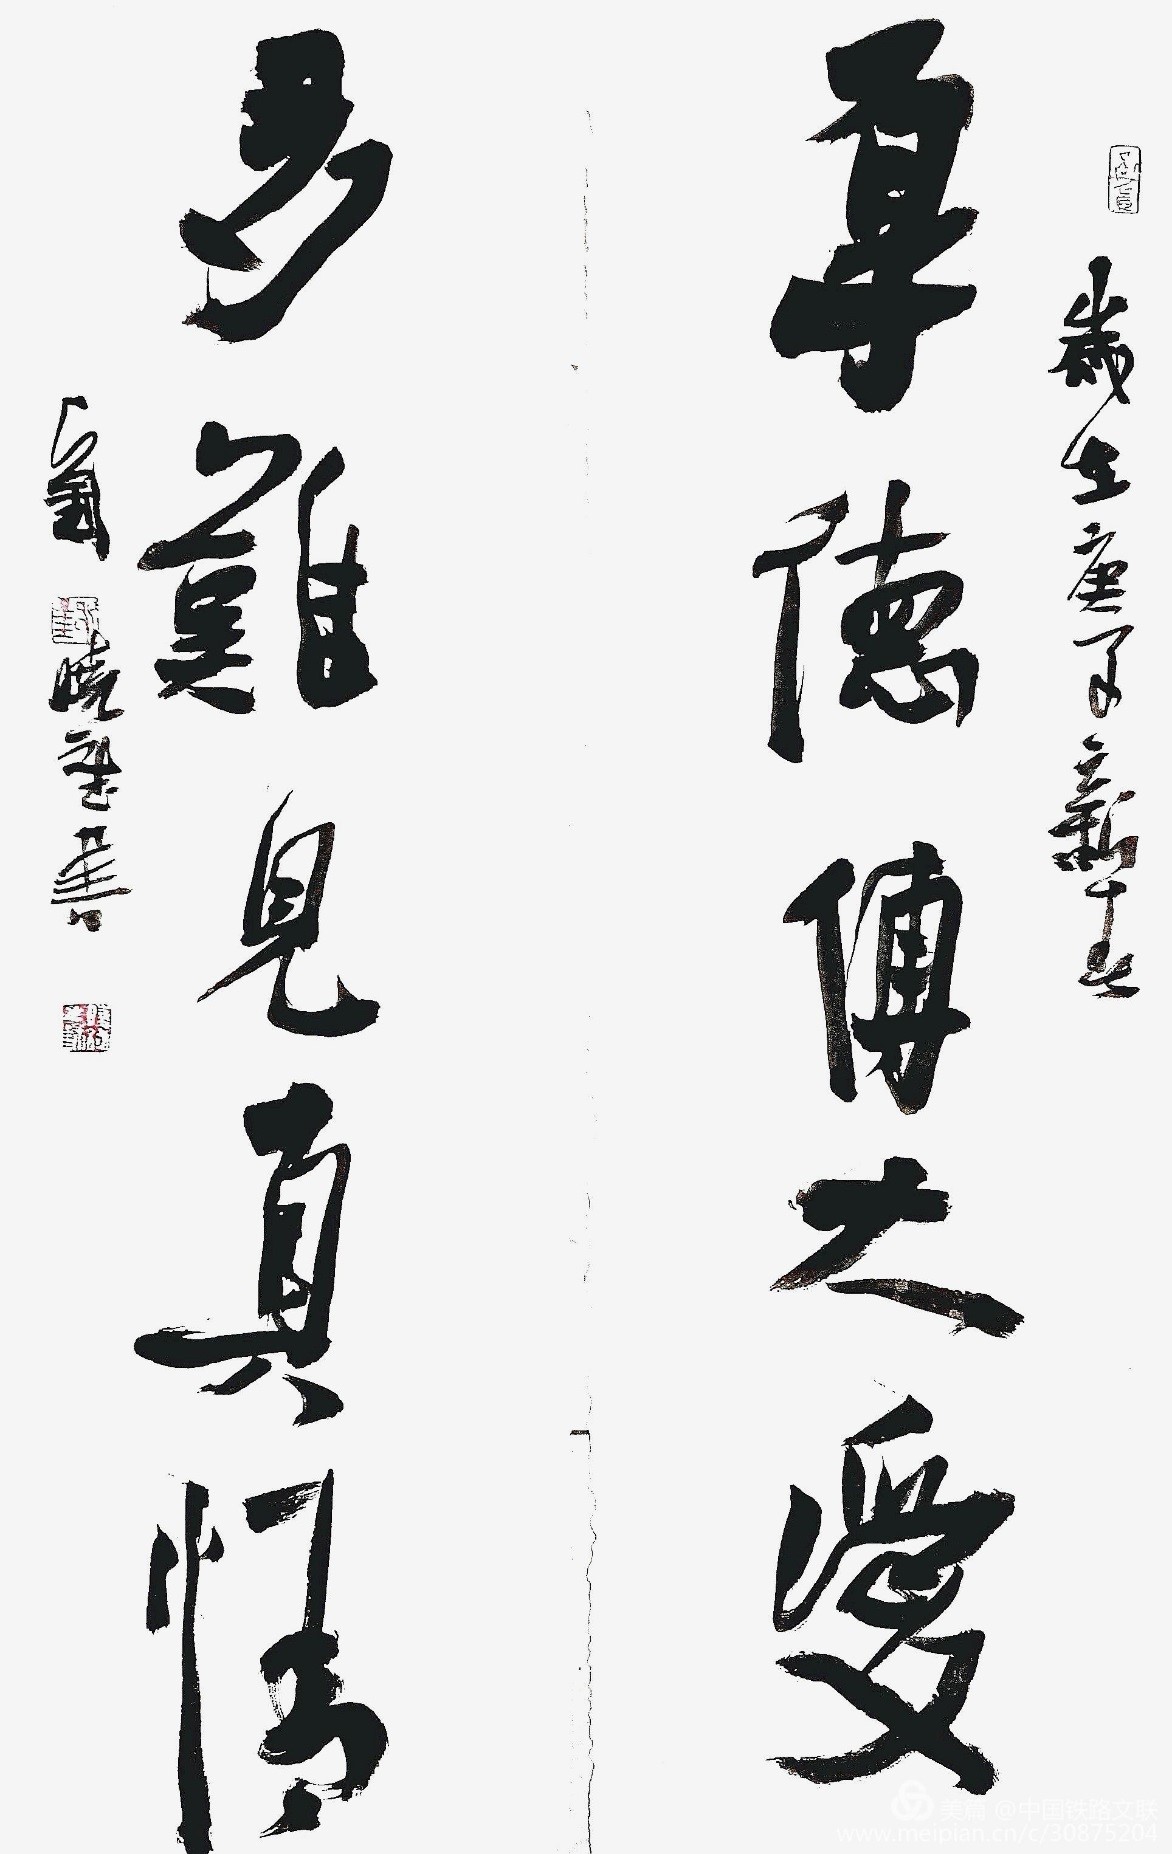 歲在庚子新春
厚德傳大愛
多難見真情
書
美篇 @中国铁路文联
www.meipian.cn/c/30875204